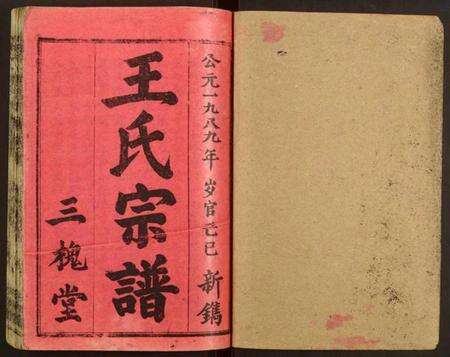 公元一九八九年岁官亡巳新镌
王氏宗譜
三槐堂